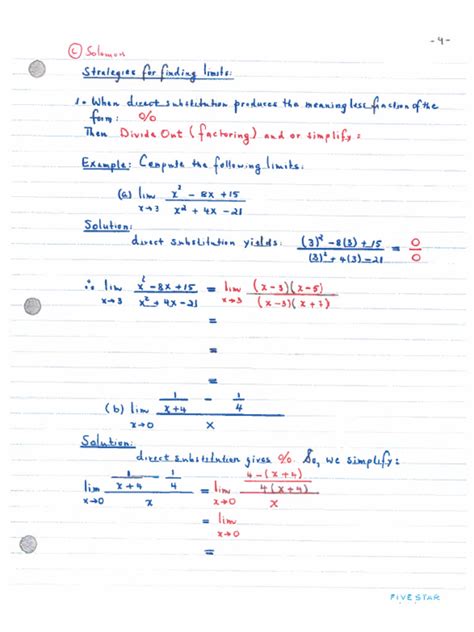 - 4 -
© Solomon
Strategies for finding limits:
1. When direct substitution produces the meaningless fraction of the
form: 0/0
Then Divide Out (factoring) and or simplify:
Example: Compute the following limits:
(a) lim x→3 (x² - 8x + 15)/(x² + 4x - 21)
Solution:
direct substitution yields: ((3)² - 8(3) + 15)/((3)² + 4(3) - 21) = 0/0
∴ lim x→3 (x² - 8x + 15)/(x² + 4x - 21) = lim x→3 ((x-3)(x-5))/((x-3)(x+7))
=
=
=
(b) lim x→0 (1/(x+4) - 1/4)/x
Solution:
direct substitution gives 0/0. So, we simplify:
lim x→0 (1/(x+4) - 1/4)/x = lim x→0 ((4-(x+4))/(4(x+4)))/x
= lim x→0
=
FIVE STAR